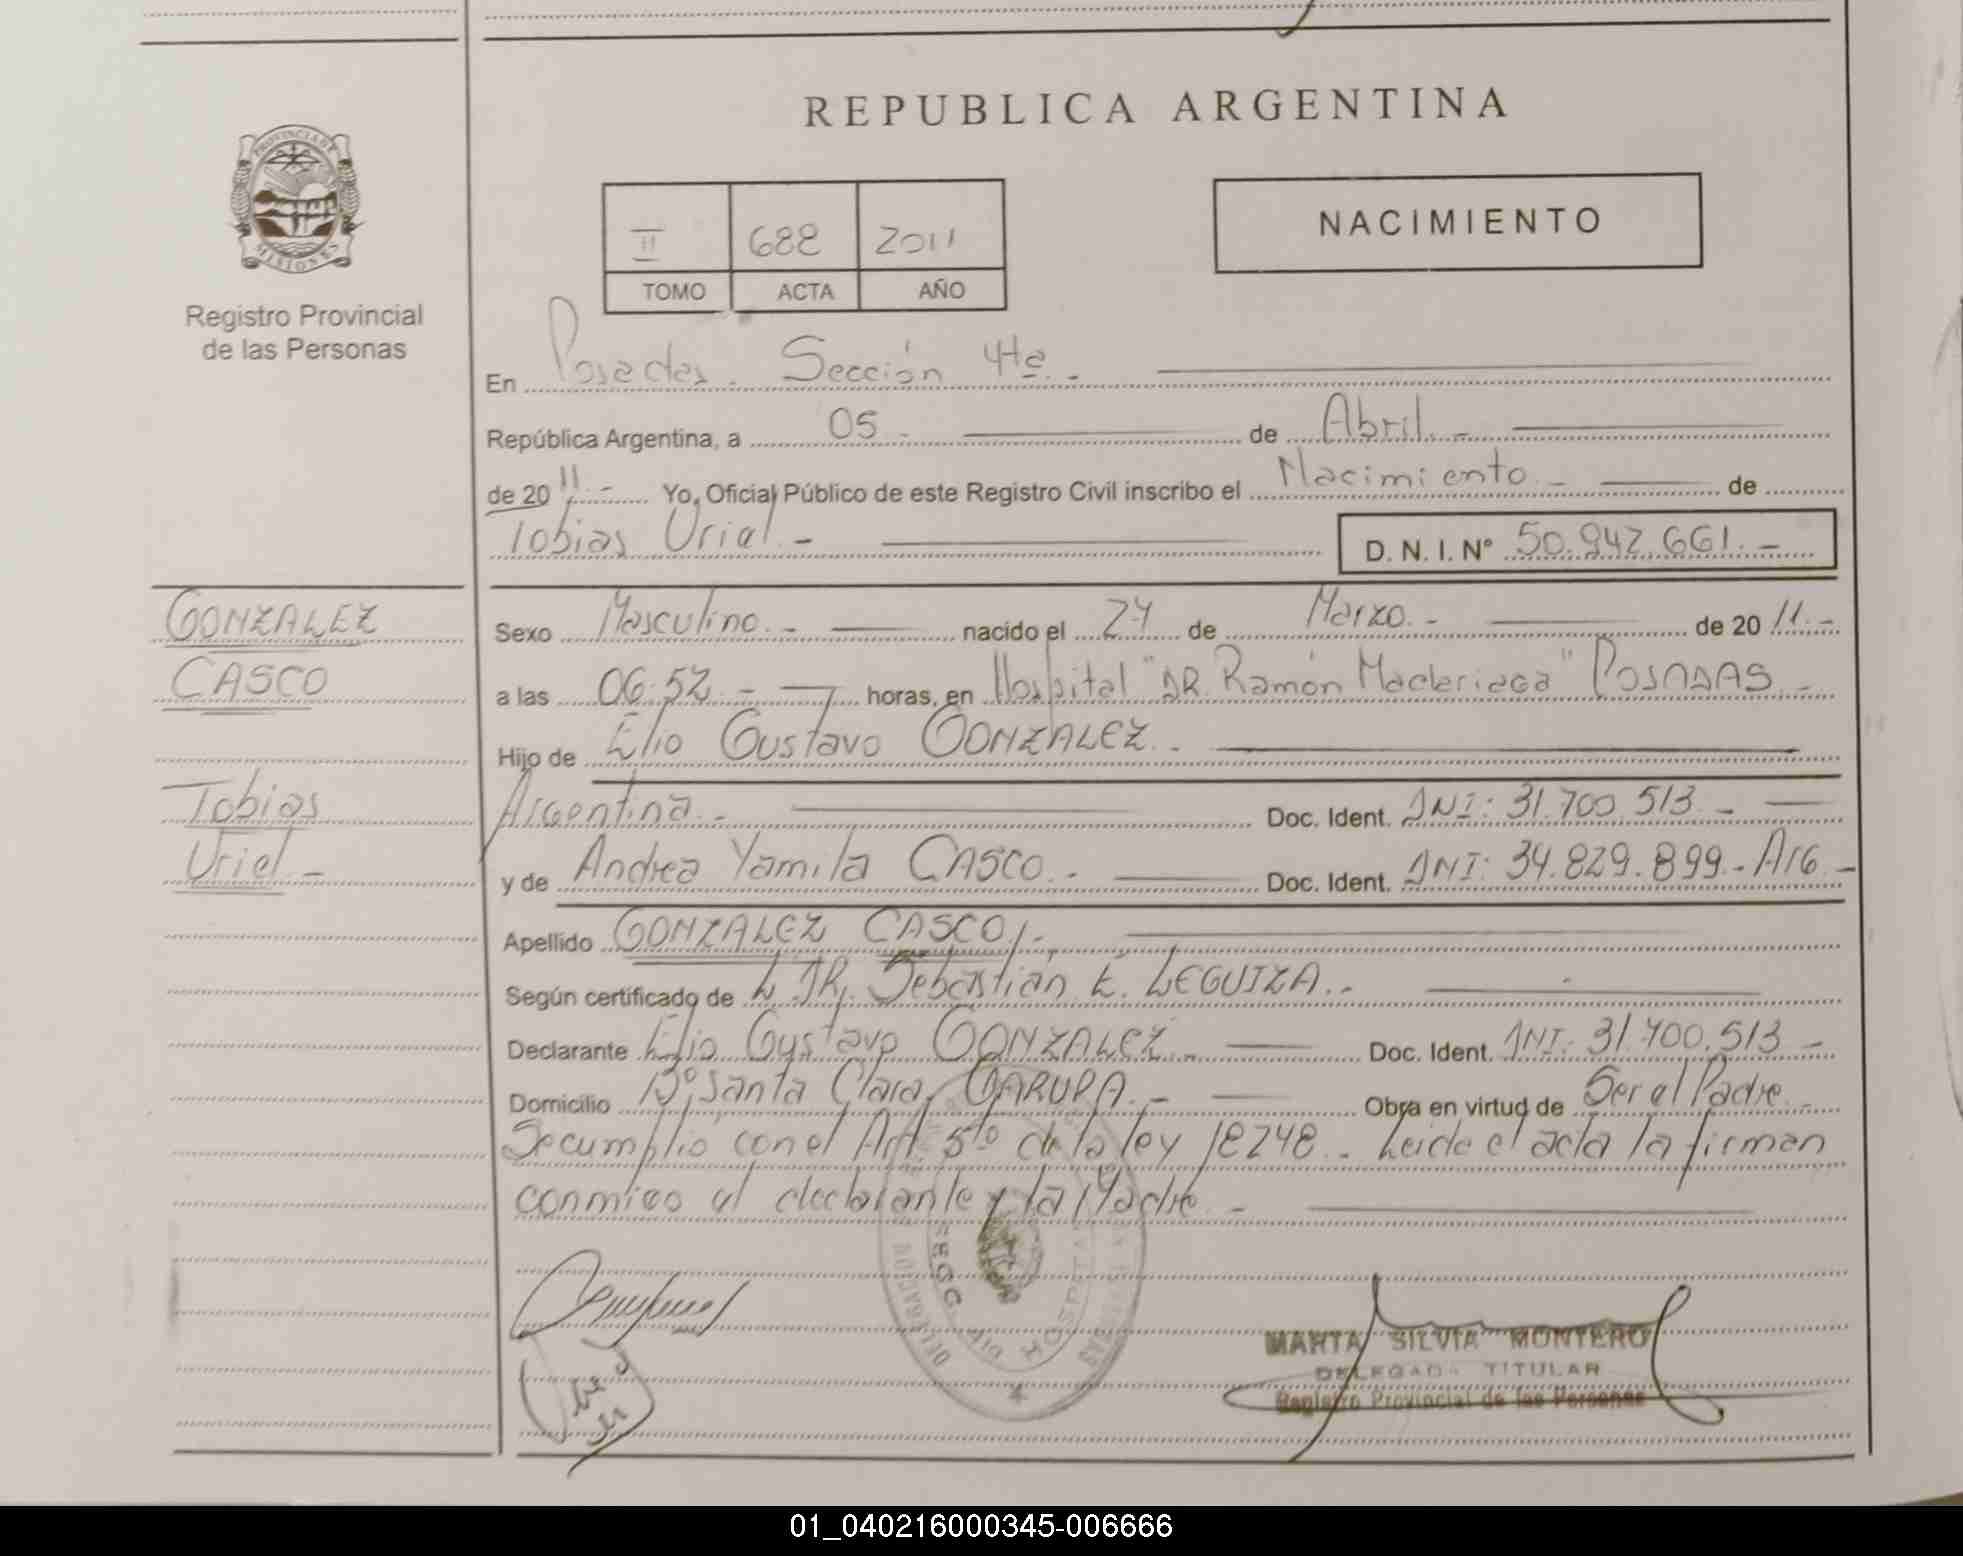 REPUBLICA ARGENTINA
PROVINCIA DE
MISIONES
Registro Provincial
de las Personas
II 688 2011
TOMO ACTA AÑO
NACIMIENTO
En Posadas. Sección 4ta.-
República Argentina, a 05.- de Abril.-
de 2011.- Yo, Oficial Público de este Registro Civil inscribo el Nacimiento.- de
Tobias Uriel.- D. N. I. Nº 50.942.661.-
GONZALEZ
CASCO
Tobias
Uriel.-
Sexo Masculino.- nacido el 24 de Marzo.- de 2011.-
a las 06:52.- horas, en Hospital "DR. Ramón Madariaga" POSADAS.-
Hijo de Elio Gustavo GONZALEZ.-
Argentina.- Doc. Ident. DNI: 31.700.513.-
y de Andrea Yamila CASCO.- Doc. Ident. DNI: 34.829.899.- Arg.-
Apellido GONZALEZ CASCO.-
Según certificado de DR. Sebastián E. LEGUIZA.-
Declarante Elio Gustavo GONZALEZ.- Doc. Ident. DNI: 31.700.513.-
Domicilio Bº Santa Clara, GARUPA.- Obra en virtud de Ser el Padre.-
Se cumplió con el Art. 5to de la ley 18248.- Leida el acta la firman
conmigo el declarante y la Madre.-
MARTA SILVIA MONTERO
DELEGADA TITULAR
Registro Provincial de las Personas
01_040216000345-006666